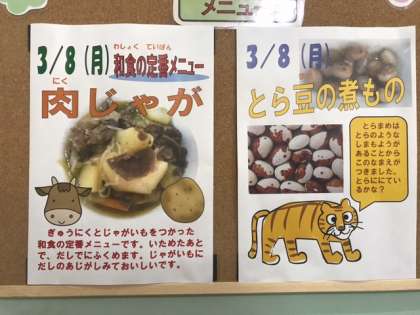 メニュー
3/8（月）
わしょく ていばん
和食の定番メニュー
にく
肉じゃが
ぎゅうにくとじゃがいもをつかった
和食の定番メニューです。いためたあと
で、だしでにふくめます。じゃがいもに
だしのあじがしみておいしいです。
3/8（月）
とら豆の煮もの
とらまめは
とらのような
しまもようが
あることから
このなまえが
つきました。
とらににてい
るかな？